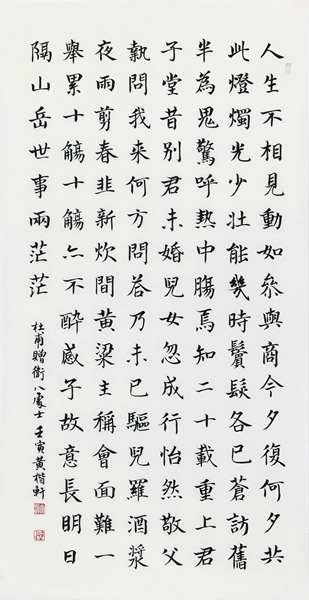 人生不相見動如參與商今夕復何夕共
此燈燭光少壯能幾時鬢髮各已蒼訪舊
半為鬼驚呼熱中腸焉知二十載重上君
子堂昔別君未婚兒女忽成行怡然敬父
執問我來何方問荅乃未已驅兒羅酒漿
夜雨剪春韭新炊間黃粱主稱會面難一
舉累十觴十觴亦不醉感子故意長明日
隔山岳世事兩茫茫
杜甫贈衛八處士 壬寅黃楷軒